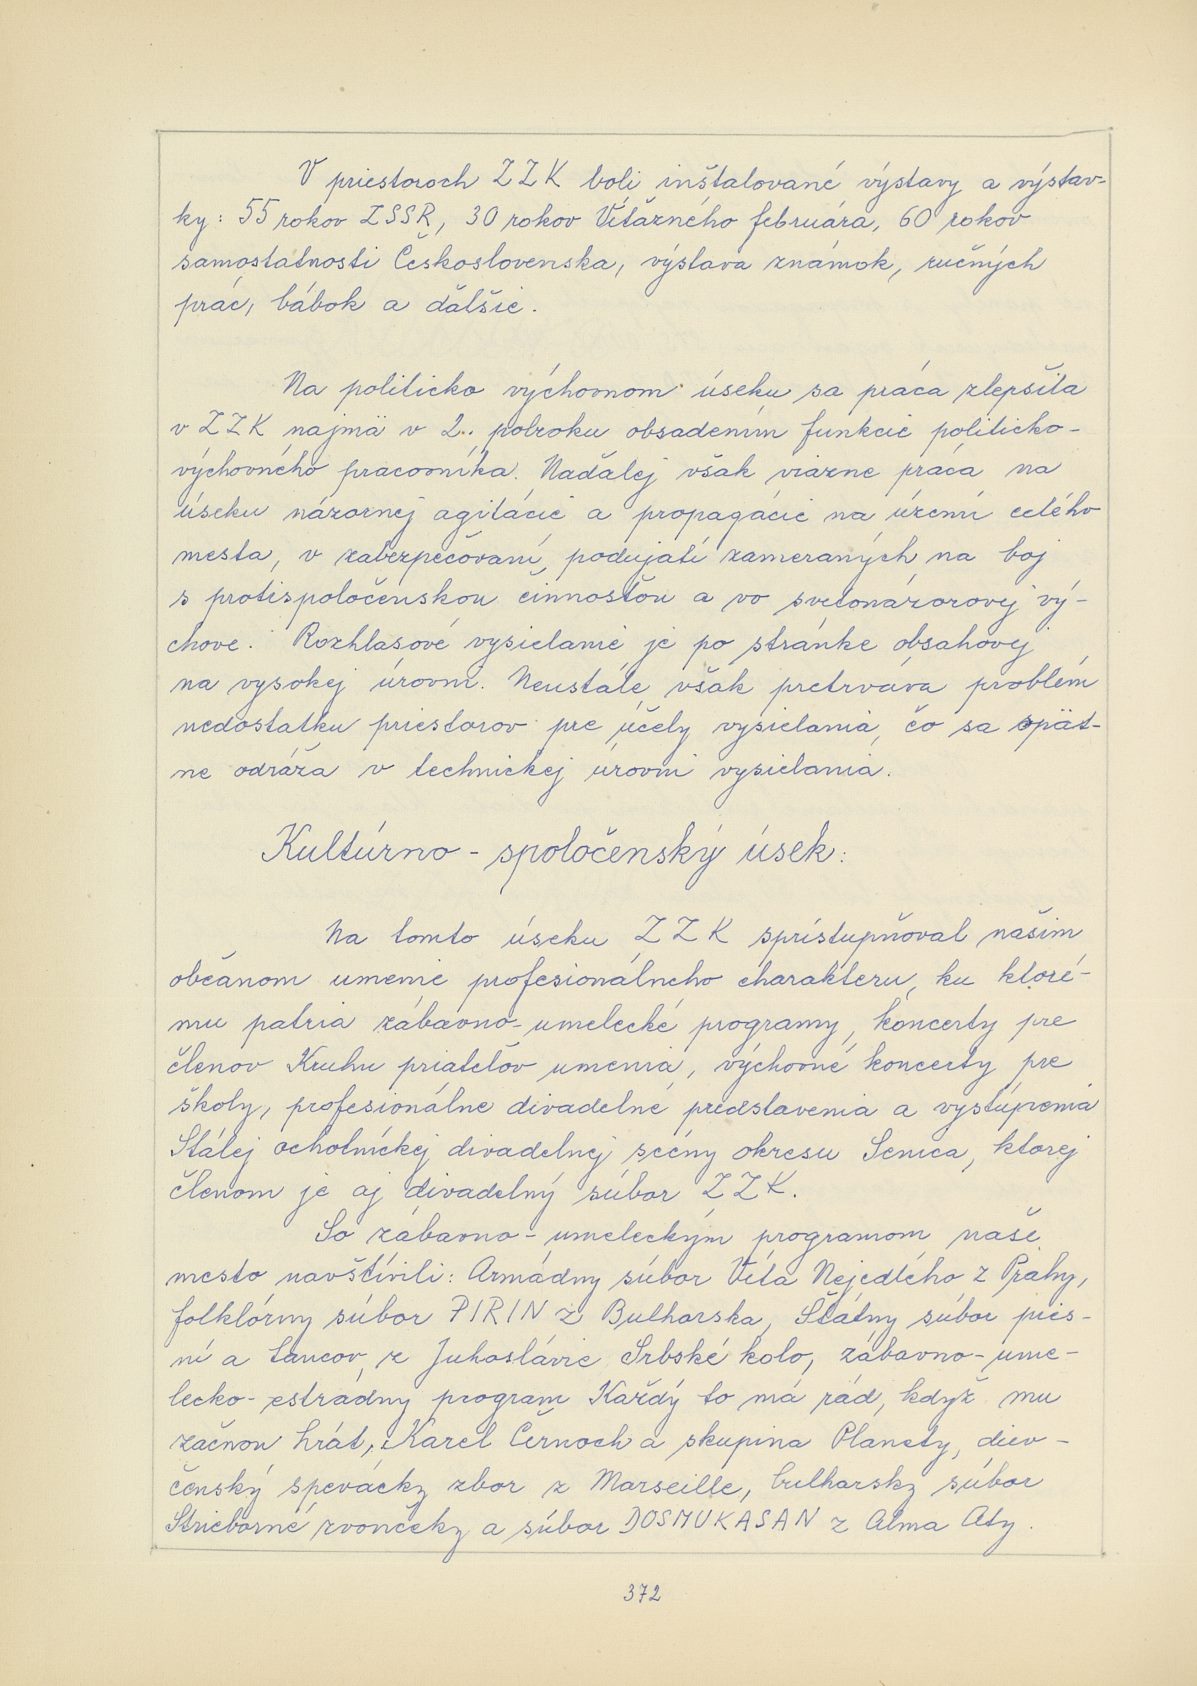 V priestoroch ZZK boli inštalované výstavy a výstav-
ky: 55 rokov ZSSR, 30 rokov Víťazného februára, 60 rokov
samostatnosti Československa, výstava známok, ručných
prác, bábok a ďalšie.
Na politicko výchovnom úseku sa práca zlepšila
v ZZK najmä v 2. polroku obsadením funkcie politicko-
výchovného pracovníka. Naďalej však viazne práca na
úseku názornej agitácie a propagácie na území celého
mesta, v zabezpečovaní podujatí zameraných na boj
s protispoločenskou činnosťou a vo svetonázorovej vý-
chove. Rozhlasové vysielanie je po stránke obsahovej
na vysokej úrovni. Neustále však pretrváva problém
nedostatku priestorov pre účely vysielania, čo sa spät-
ne odráža v technickej úrovni vysielania.
Kultúrno - spoločenský úsek:
Na tomto úseku ZZK sprístupňoval našim
občanom umenie profesionálneho charakteru, ku ktoré-
mu patria zábavno-umelecké programy, koncerty pre
členov Kruhu priateľov umenia, výchovné koncerty pre
školy, profesionálne divadelné predstavenia a vystúpenia
Stálej ochotníckej divadelnej scény okresu Senica, ktorej
členom je aj divadelný súbor ZZK.
So zábavno-umeleckým programom naše
mesto navštívili: Armádny súbor Víta Nejedlého z Prahy,
folklórny súbor PIRIN z Bulharska, Štátny súbor pies-
ní a tancov z Juhoslávie Srbské kolo, zábavno-ume-
lecko-estrádny program Každý to má rád, když mu
začnou hrát, Karel Černoch a skupina Planety, diev-
čenský spevácky zbor z Marseille, bulharský súbor
Strieborné zvončeky a súbor DOSMUKASAN z Alma Aty.
372